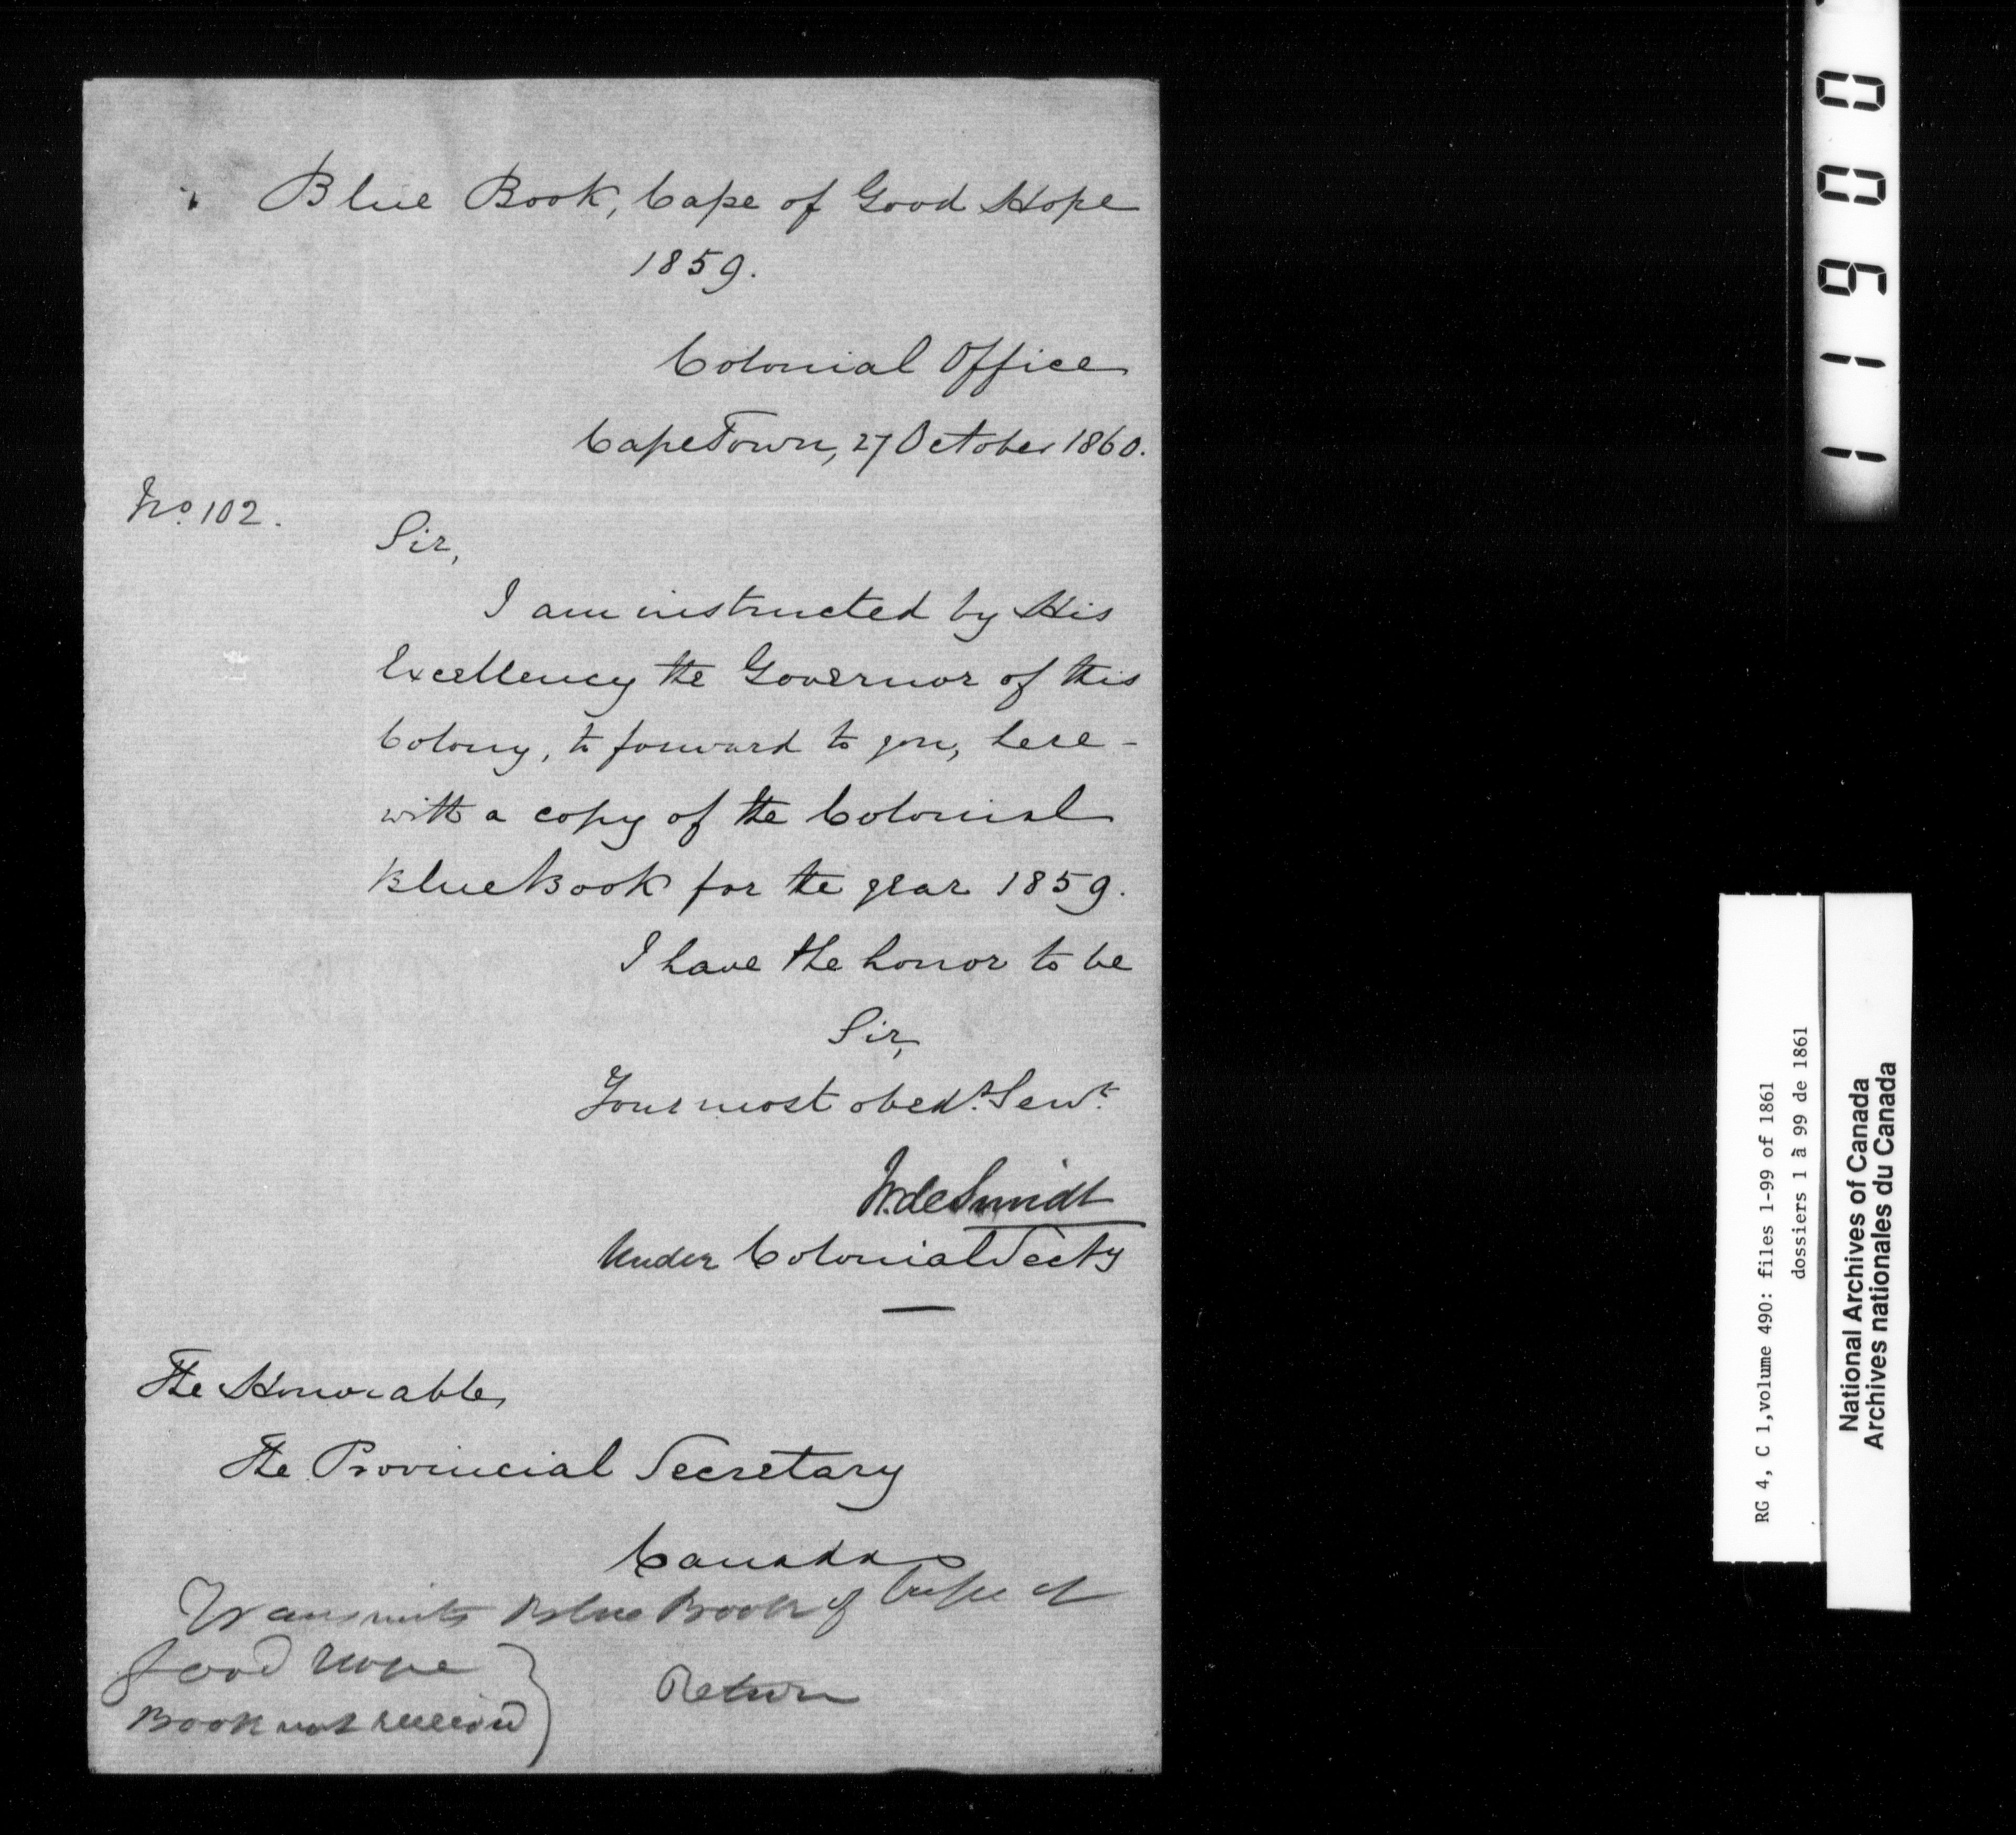 Blue Book, Cape of Good Hope
1859.
Colonial Office
Cape Town, 27 October 1860.
No. 102.
Sir,
I am instructed by His
Excellency the Governor of this
Colony, to forward to you, here-
with a copy of the Colonial
Blue Book for the year 1859.
I have the honor to be
Sir,
Your most obedt. Servt.
W. de Smidt
Under Colonial Secty
The Honorable
The Provincial Secretary
Canada
Transmits Blue Book of Cape of
Good Hope
Book not received
Return
11900
RG 4, C 1,volume 490: files 1-99 of 1861
dossiers 1 à 99 de 1861
National Archives of Canada
Archives nationales du Canada